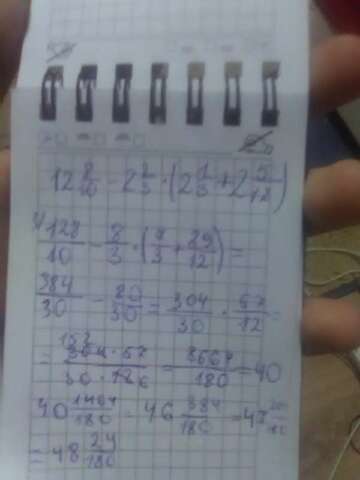 12 8/10 - 2 2/3 · (2 1/3 + 2 5/12)
128/10 - 8/3 · (7/3 + 29/12) =
384/30 - 80/30 = 304/30 · 57/12 =
= 304 · 57 / 30 · 126 = 8664/180 = 40
40 1464/180 = 46 384/180 = 47
= 48 24/180